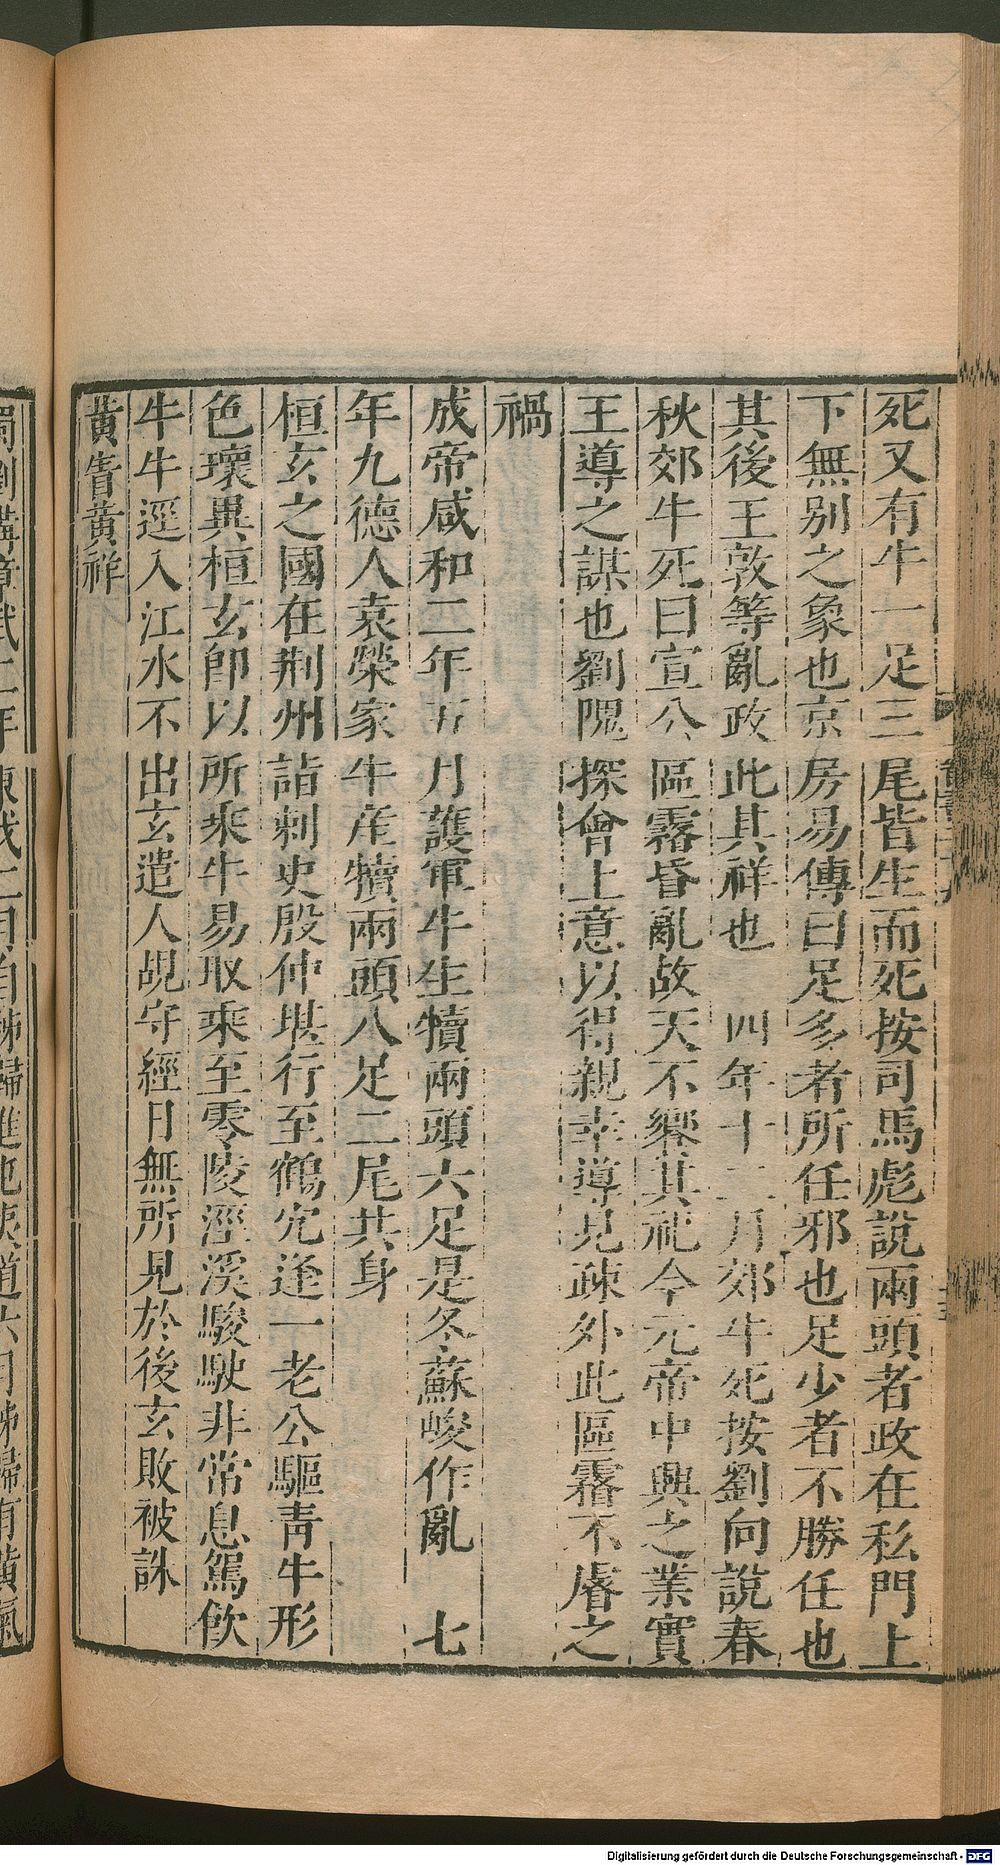 死又有牛一足三尾皆生而死按司馬彪說兩頭者政在私門上
下無别之象也京房易傳曰足多者所任邪也足少者不勝任也
其後王敦等亂政此其祥也　四年十二月郊牛死按劉向說春
秋郊牛死曰宣公區霿昏亂故天不饗其祀今元帝中興之業實
王導之謀也劉隗探會上意以得親幸導見疎外此區霿不睿之
禍
成帝咸和二年五月護軍牛生犢兩頭六足是冬蘇峻作亂　七
年九德人袁榮家牛産犢兩頭八足二尾共身
桓玄之國在荆州詣刺史殷仲堪行至鶴宂逢一老公驅青牛形
色瓌異桓玄卽以所乘牛易取乘至零陵涇溪駿駛非常息駕飲
牛牛逕入江水不出玄遣人覘守經日無所見於後玄敗被誅
黄眚黄祥
蜀劉備章武二年東伐二月自秭歸進屯夷道六月秭歸有黄氣
Digitalisierung gefördert durch die Deutsche Forschungsgemeinschaft - DFG